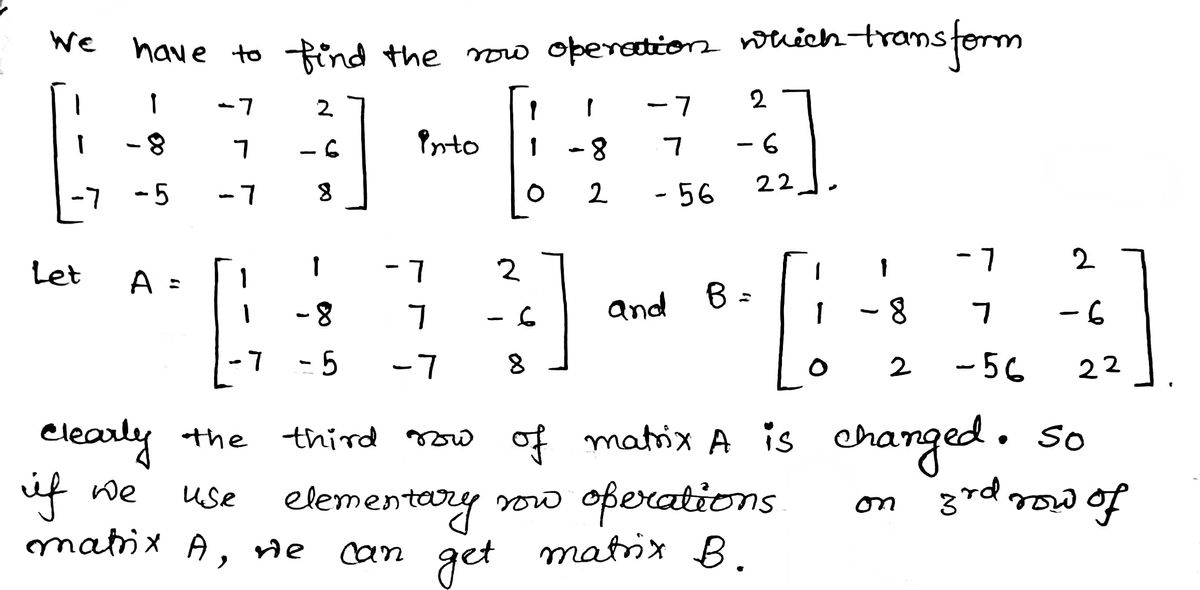 We have to find the row operation which transform
[ 1 1 -7 2 ] [ 1 1 -7 2 ]
[ 1 -8 7 -6 ] into [ 1 -8 7 -6 ]
[ -7 -5 -7 8 ] [ 0 2 -56 22 ].
Let A = [ 1 1 -7 2 ] and B = [ 1 1 -7 2 ]
[ 1 -8 7 -6 ] [ 1 -8 7 -6 ]
[ -7 -5 -7 8 ] [ 0 2 -56 22 ].
clearly the third row of matrix A is changed. so
if we use elementary row operations on 3rd row of
matrix A, we can get matrix B.